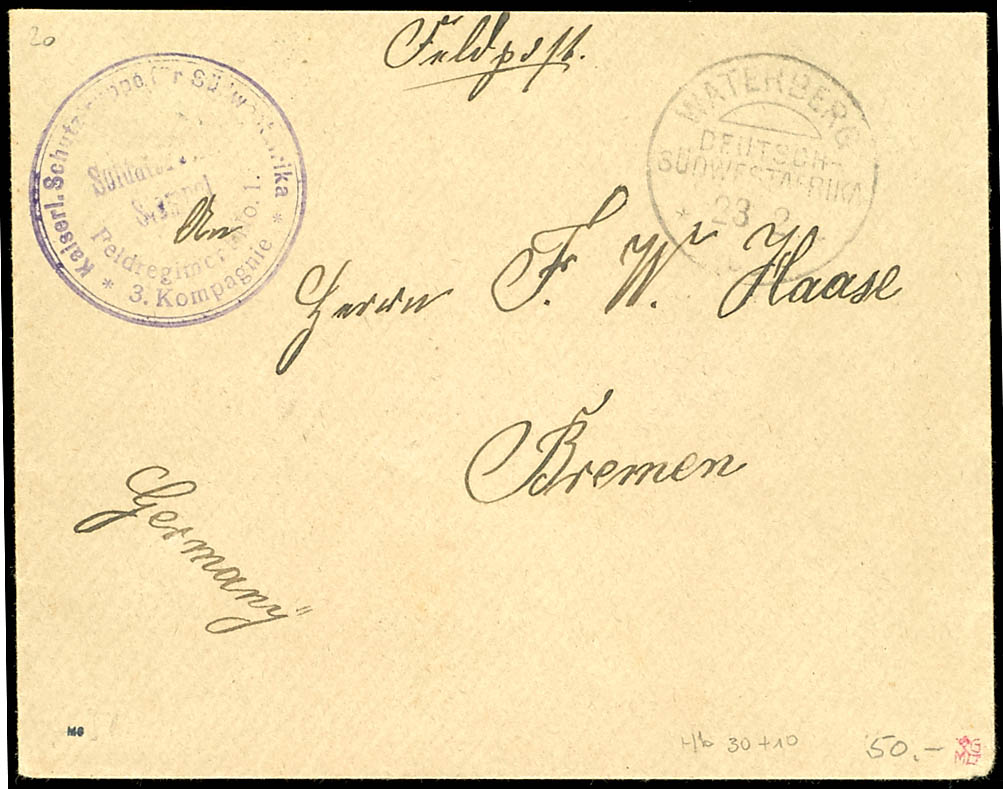 20
Feldpost.
Kaiserl. Schutztruppe für Südwestafrika
Feldregiment No. 1.
* 3. Kompagnie *
WATERBERG
DEUTSCH-
SÜDWESTAFRIKA
* 23 2
An
Herrn F. W. Haase
Bremen
Germany
MG
30 + 10
50.-